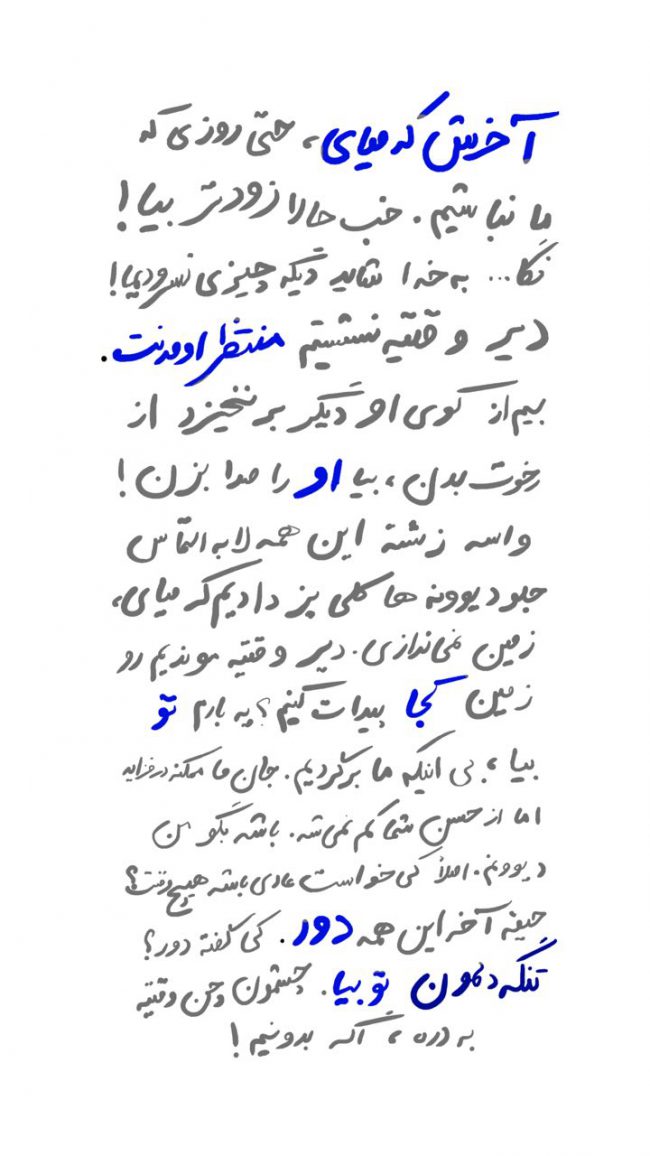 آخرش که میای، حتی روزی که
ما نباشیم. خب حالا زودتر بیا!
نگا... به خدا شاید دیگه چیزی نسرودیما!
دیر وقتیه نشستیم منتظر اومدنت.
بیم از کوی او دیگر برنخیزد از
رخوت بدن، بیا او را صدا بزن!
واسه زشته این همه لابه التماس
جلو دیوونه ها کلی پز دادیم که میای،
زمین نمی‌اندازی. دیر وقتیه موندیم رو
زمین کجا پیدات کنیم؟ یه بارم تو
بیا، بی اینکه ما برگردیم. جان ما ممکنه در فراید
اما از حسن شما کم نمی‌شه. باشه بگو من
دیوونم. اصلاً کی خواست عادی باشه هیچ وقت؟
حیفه آخه این همه دور. کی گفته دور؟
تنگه دلمون تو بیا. چشمون وقتیه
به دره، اگه بدونیم!